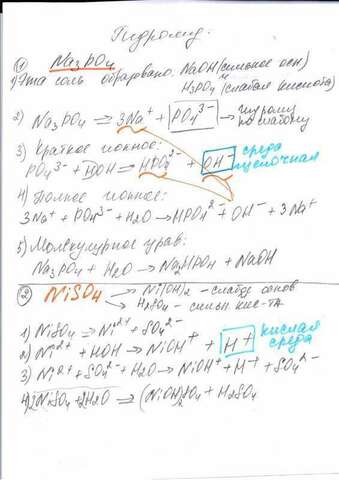 Гидролиз.
① Na₃PO₄
1) Эта соль образовано NaOH (сильное осн)
и H₃PO₄ (слабая кислота)
2) Na₃PO₄ ⇌ 3Na⁺ + PO₄³⁻ → гидролиз по слабому
3) Краткое ионное:
PO₄³⁻ + HOH ⇌ HPO₄²⁻ + OH⁻ среда щелочная
4) Полное ионное:
3Na⁺ + PO₄³⁻ + H₂O → HPO₄²⁻ + OH⁻ + 3Na⁺
5) Молекулярное урав:
Na₃PO₄ + H₂O → Na₂HPO₄ + NaOH
② NiSO₄ → Ni(OH)₂ - слабое основ
→ H₂SO₄ - сильн. кис-та
1) NiSO₄ ⇌ Ni²⁺ + SO₄²⁻
2) Ni²⁺ + HOH → NiOH⁺ + H⁺ кислая среда
3) Ni²⁺ + SO₄²⁻ + H₂O → NiOH⁺ + H⁺ + SO₄²⁻
4) 2NiSO₄ + 2H₂O ⇌ (NiOH)₂SO₄ + H₂SO₄